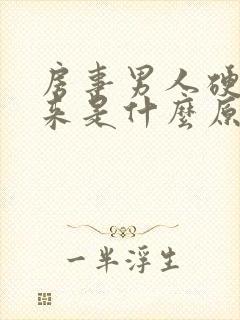 房事男人硬
来是什麼原
一半浮生